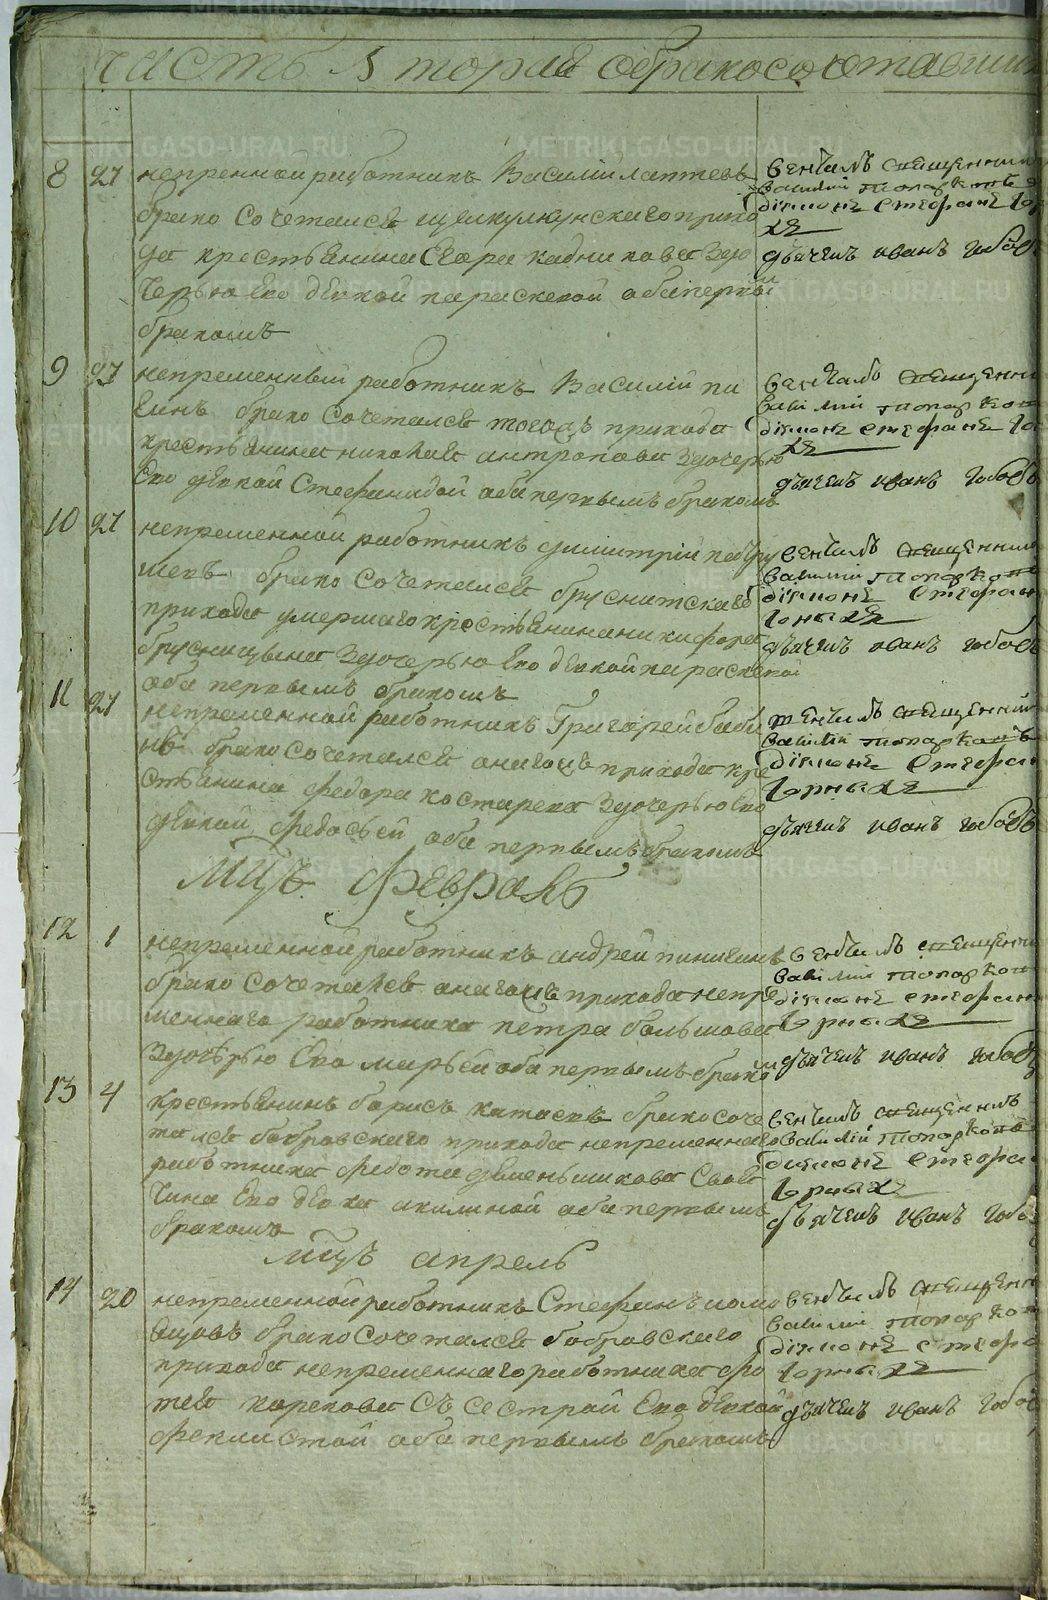 часть вторая о бракосочетавши
8 27 непременной работникъ Василий Лаптевъ
бракосочетался щелкунскаго прихо
да крестьянина Егора кадникова здо
черью Ево девкой параскевой оба первы
бракомъ
венчалъ священник
Василий топорков
дiяконъ стефанъ гор
хъ
дьячекъ иванъ
9 27 непременный работникъ Василий пи
бракосочетался тогожъ прихода
крестьянина николая антропова здочерью
Ево девкой Стефанидой оба первымъ бракомъ
венчалъ священни
Василий топорков
дiяконъ стефанъ го
хъ
дьячекъ иванъ
10 27 непременной работникъ димитрий петру
шевъ бракосочетался бруснитскаго
прихода умершаго крестьянина никифора
брусницына здочерью Ево девкой параскевой
оба первымъ бракомъ
венчалъ священник
Василий топорков
дiяконъ стефан
горныхъ
дьячекъ иванъ
11 27 непременной работникъ Григорей баби
нъ бракосочетался онагожъ прихода кре
стьянина Федора костарева здочерью Ево
девкой федосьей оба первымъ бракомъ
венчалъ священник
Василий топорковъ
дiяконъ стефан
горныхъ
дьячекъ иванъ
мцъ февраль
12 1 непременной работникъ андрей пинигинъ
бракосочетался онагожъ прихода непре
меннаго работника петра большова
здочерью Ево марьей оба первымъ брако
венчалъ священни
Василий топорков
дiяконъ стефан
горныхъ
дьячекъ иванъ
13 4 крестьянинъ борисъ катаевъ бракосоче
тался бобровскаго прихода непременнаго
работника федота деменьшикова своя
чина Ево девка акилиной оба первымъ
бракомъ
венчалъ священникъ
Василий топорковъ
дiяконъ стефан
горныхъ
дьячекъ иванъ
мцъ апрель
14 20 непременной работникъ Стефанъ
бракосочетался бобровскаго
прихода непременнаго работника фо
тея карекова съ сестрой Ево девкой
феклистой оба первымъ бракомъ
венчалъ священн
Василий топорков
дiяконъ стефа
горныхъ
дьячекъ иванъ